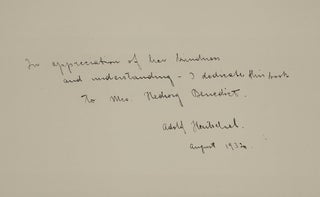 In appreciation of her kindness
and understanding – I dedicate this book
to Mrs. Hedwig Benedict.
Adolf
August 1932.